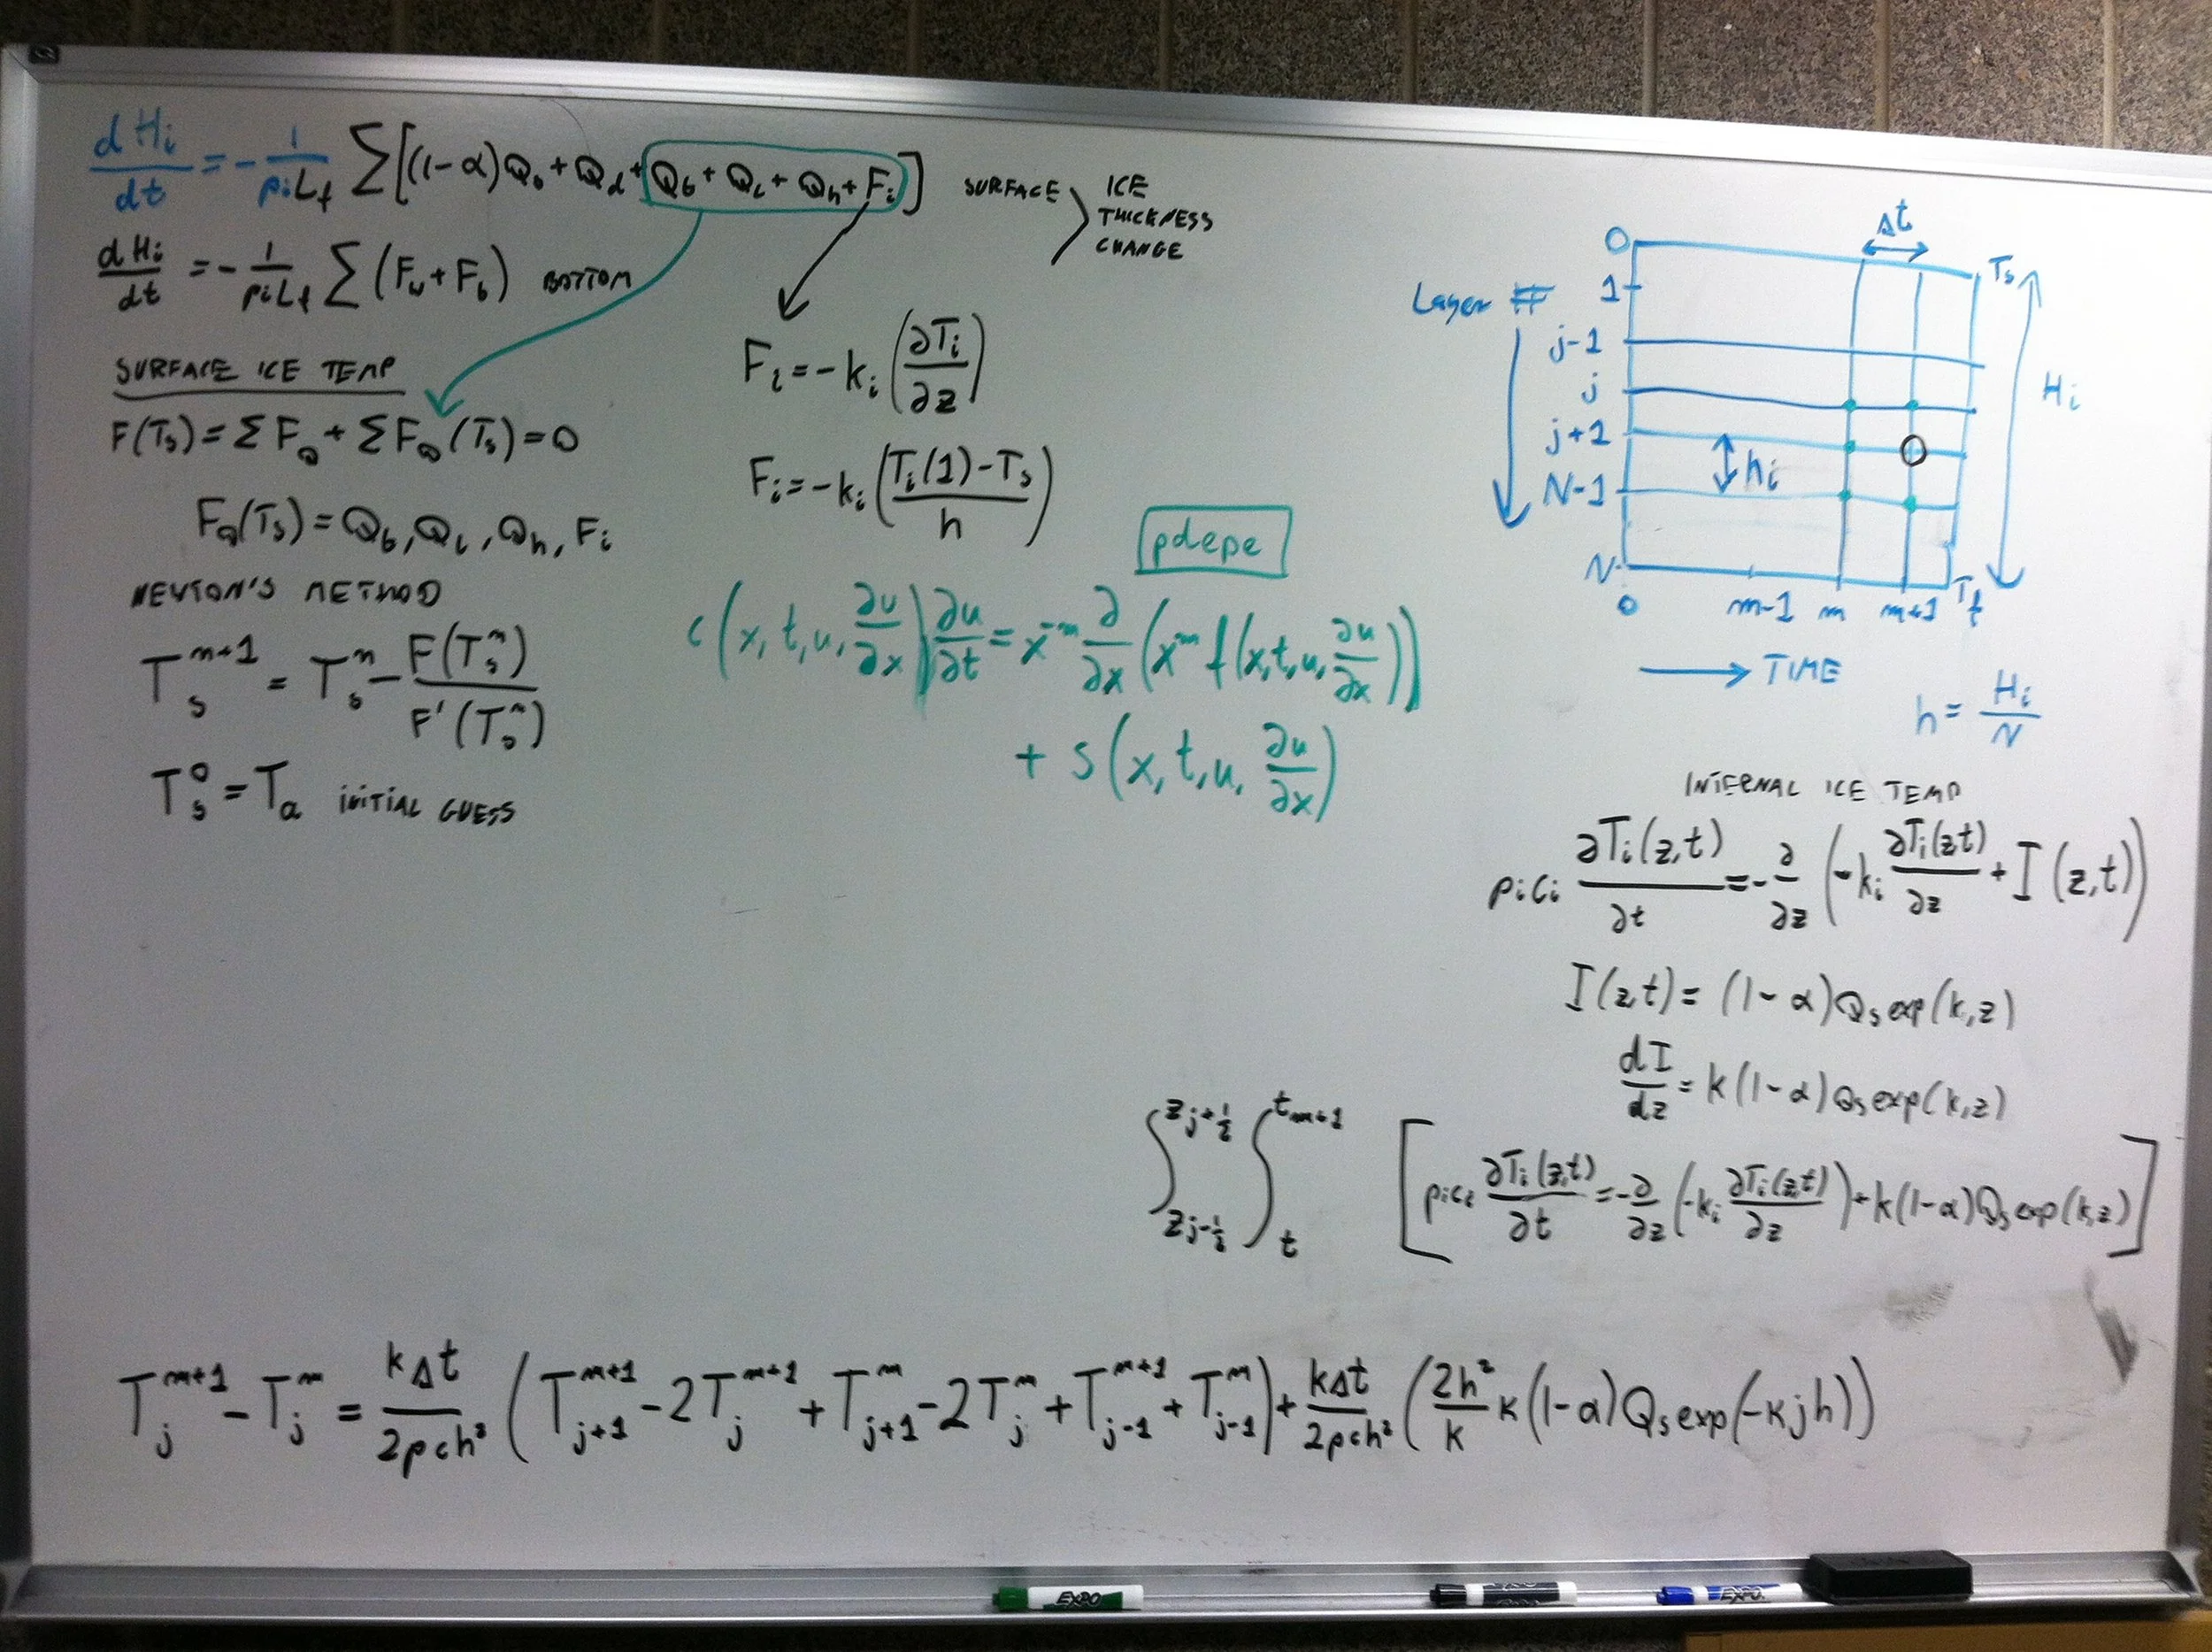 dHi/dt = -1/ρiLf Σ[(1-α)Qo + Qd + Qb + QL + Qh + Fi]
SURFACE
ICE
THICKNESS
CHANGE
dHi/dt = -1/ρiLf Σ(Fw + Fb) BOTTOM
SURFACE ICE TEMP
F(Ts) = ΣFQ + ΣFQ(Ts) = 0
FQ(Ts) = Qb, QL, Qh, Fi
NEWTON'S METHOD
Ts^n+1 = Ts^n - F(Ts^n)/F'(Ts^n)
Ts^0 = Ta INITIAL GUESS
Fi = -ki(∂Ti/∂z)
Fi = -ki(Ti(1)-Ts/h)
pdepe
c(x, t, u, ∂u/∂x)∂u/∂t = x^-m ∂/∂x(x^m f(x, t, u, ∂u/∂x))
+ s(x, t, u, ∂u/∂x)
Δt
0
Ts
Layer #
1
j-1
j
Hi
j+1
hi
N-1
N
Tf
0 m-1 m m+1
TIME
h = Hi/N
INTERNAL ICE TEMP
ρici ∂Ti(z,t)/∂t = -∂/∂z(-ki ∂Ti(z,t)/∂z + I(z,t))
I(z,t) = (1-α)Qs exp(k,z)
dI/dz = k(1-α)Qs exp(k,z)
∫zj-½^zj+½ ∫t^tm+1 [ρici ∂Ti(z,t)/∂t = -∂/∂z(-ki ∂Ti(z,t)/∂z) + k(1-α)Qs exp(k,z)]
Tj^m+1 - Tj^m = kΔt/2ρch² (Tj+1^m+1 - 2Tj^m+1 + Tj+1^m - 2Tj^m + Tj-1^m+1 + Tj-1^m) + kΔt/2ρch² (2h²/k κ(1-α)Qs exp(-κjh))
EXPO
EXPO